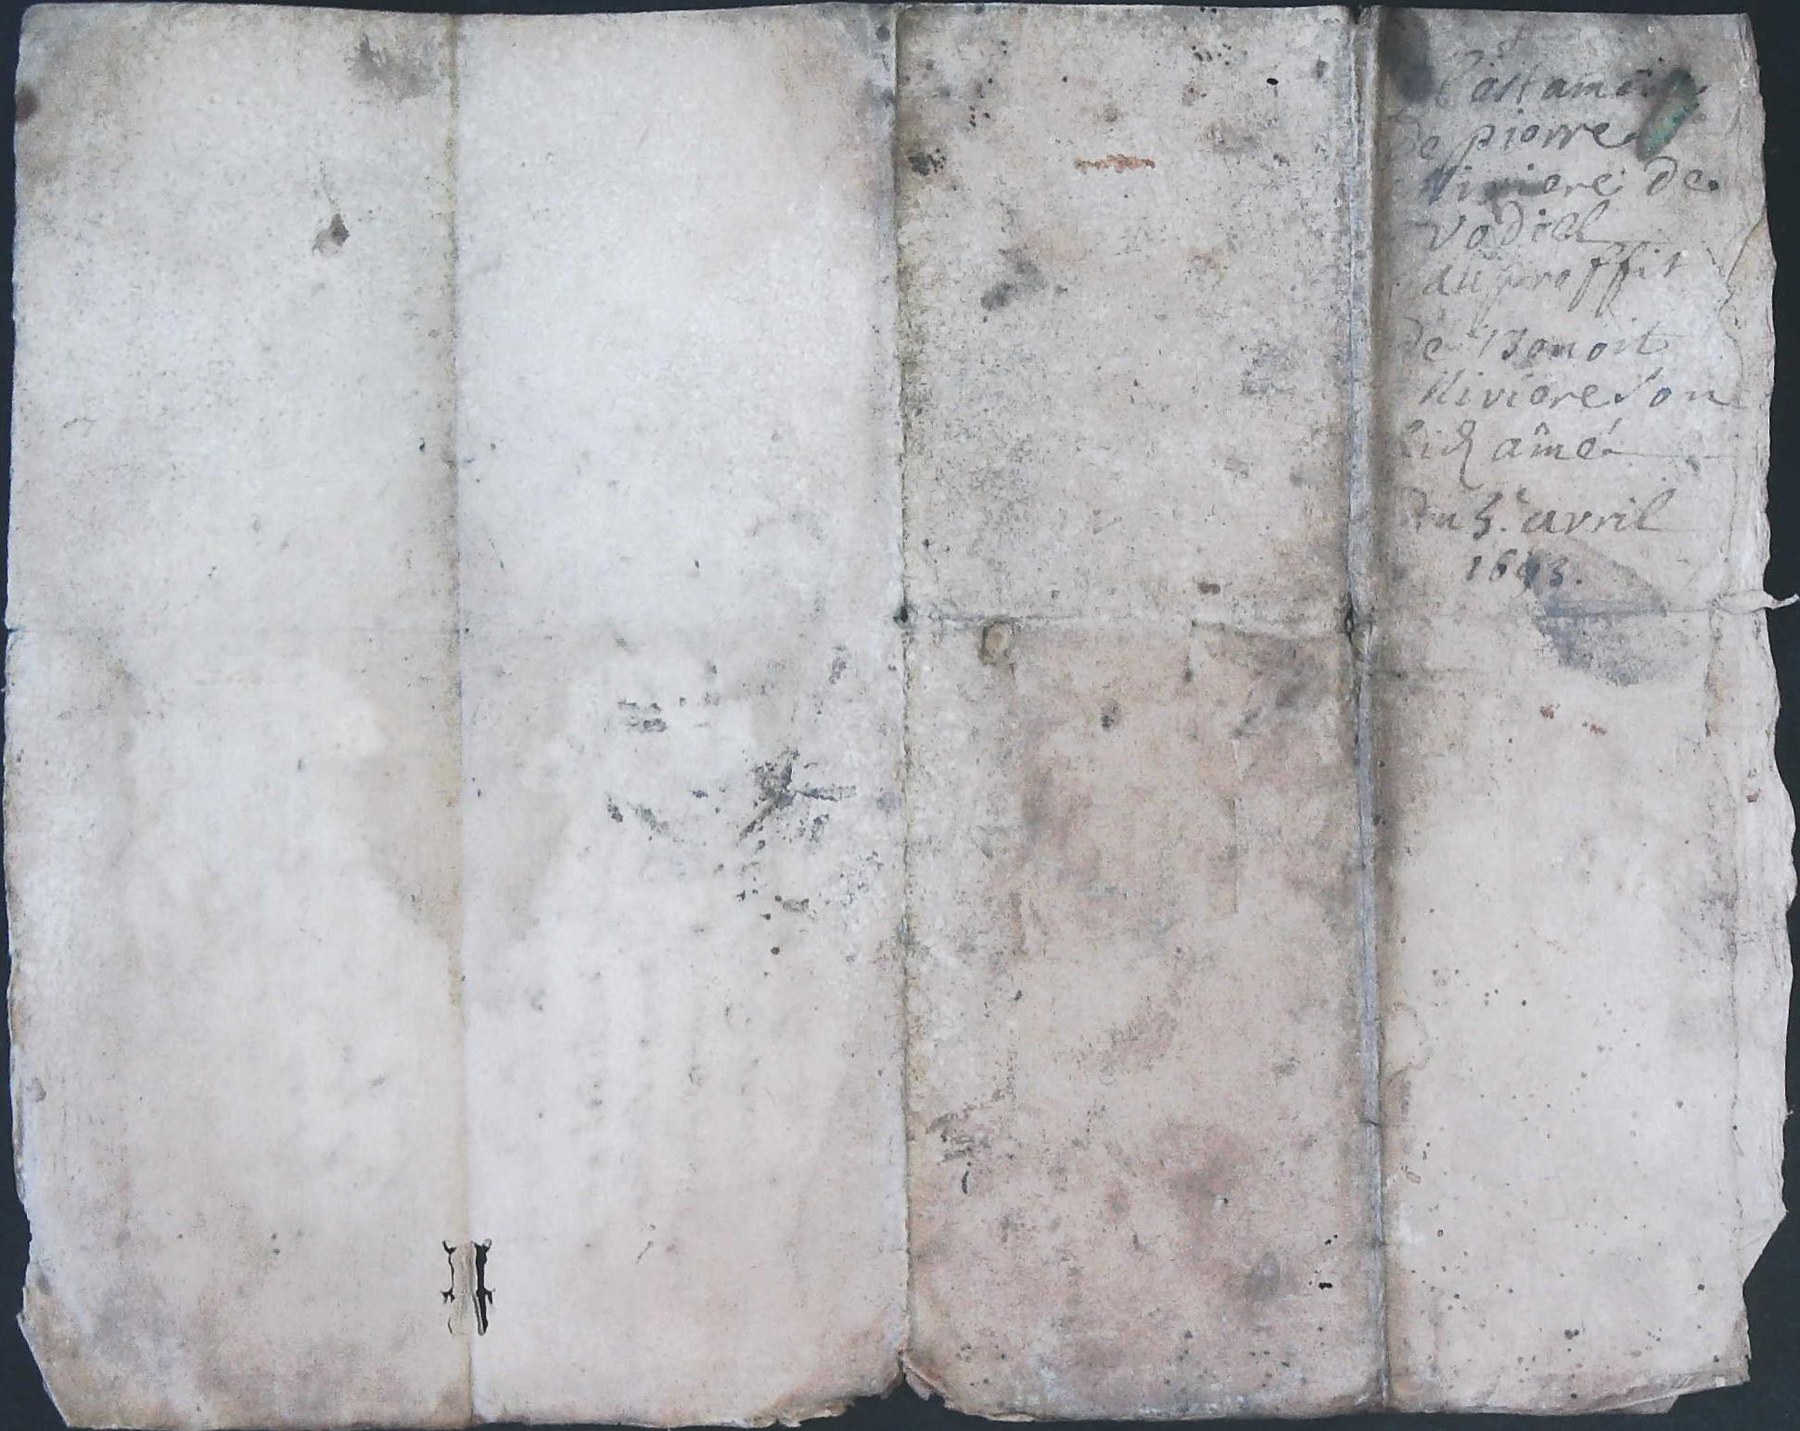 Testament
de pierre
Riviere de
Vodiel
au proffit
de Benoit
Riviere son
fils amé
du 5.e avril
1693.